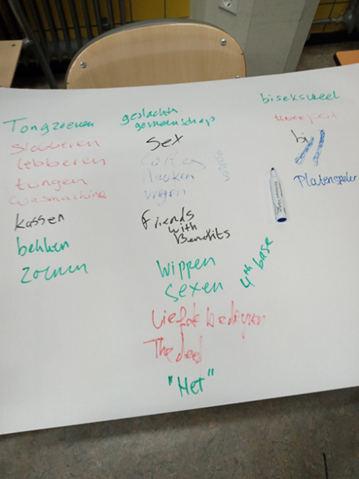 Tongzoenen
slabberen
lebberen
tungen
wasmachine
kassen
bekken
zoenen
geslachts
gemeenschap
sex
neuken
vrijen
friends
with
Benefits
wippen
sexen
4th base
liefde bedrijven
The deed
"Het"
biseksueel
bi
Platenspeler